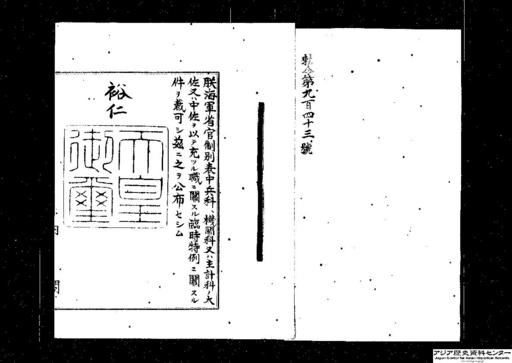 勅令第九百四十三號
朕海軍省官制別表中兵科、機關科又ハ主計科ノ大
佐又ハ中佐ヲ以テ充ツル職ニ關スル臨時特例ニ關スル
件ヲ裁可シ茲ニ之ヲ公布セシム
裕仁
天皇
御璽
内閣
アジア歴史資料センター
Japan Center for Asian Historical Records